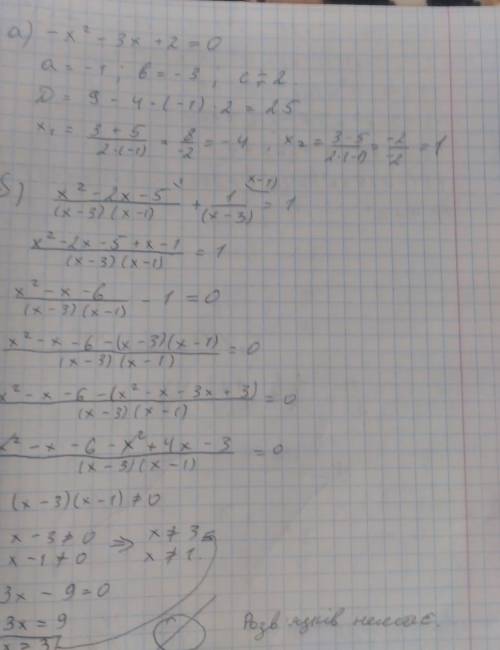 а) -x² - 3x + 2 = 0
a = -1; b = -3, c = 2
D = 9 - 4 · (-1) · 2 = 25
x₁ = (3 + 5)/(2·(-1)) = 8/(-2) = -4, x₂ = (3-5)/(2·(-1)) = (-2)/(-2) = 1
б) (x² - 2x - 5)/((x-3)(x-1)) + 1/(x-3) = 1
(x-1)
(x² - 2x - 5 + x - 1)/((x-3)(x-1)) = 1
(x² - x - 6)/((x-3)(x-1)) - 1 = 0
(x² - x - 6 - (x-3)(x-1))/((x-3)(x-1)) = 0
(x² - x - 6 - (x² - x - 3x + 3))/((x-3)(x-1)) = 0
(x² - x - 6 - x² + 4x - 3)/((x-3)(x-1)) = 0
(x-3)(x-1) ≠ 0
x - 3 ≠ 0 ⇒ x ≠ 3
x - 1 ≠ 0 x ≠ 1
3x - 9 = 0
3x = 9
x = 3
Розв'язків немає.